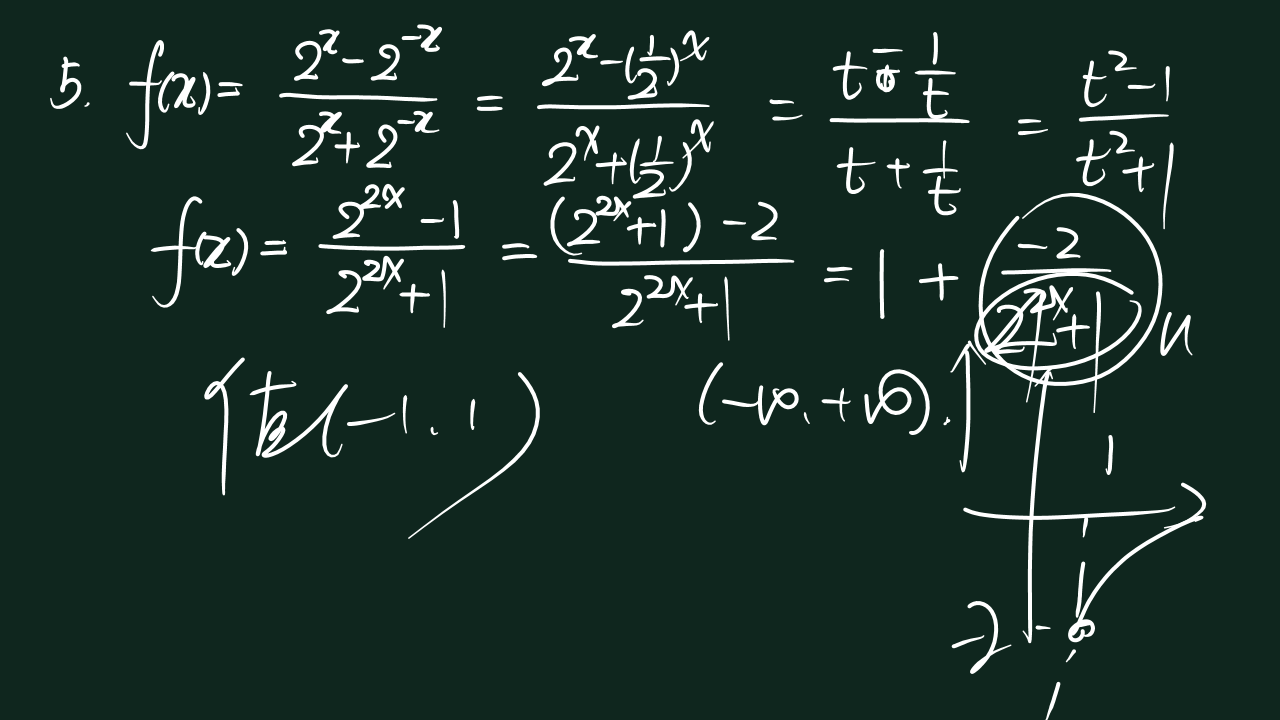 5. f(x) = (2^x - 2^{-x}) / (2^x + 2^{-x}) = (2^x - (1/2)^x) / (2^x + (1/2)^x) = (t - 1/t) / (t + 1/t) = (t^2 - 1) / (t^2 + 1)
f(x) = (2^{2x} - 1) / (2^{2x} + 1) = ((2^{2x} + 1) - 2) / (2^{2x} + 1) = 1 + (-2) / (2^{2x} + 1) u
↑在(-1, 1) (-∞, +∞). ↑
1
-2